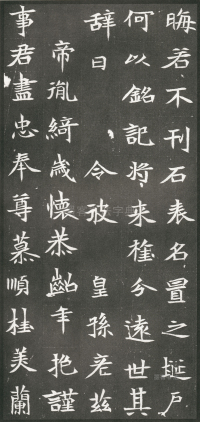 晦若不刊石表名置之埏户
何以銘記將来権兮遠世其
辞曰 令彼 皇孫老茲
帝胤綺歲懷恭齠年抱謹
事君盡忠奉尊慕順桂美蘭